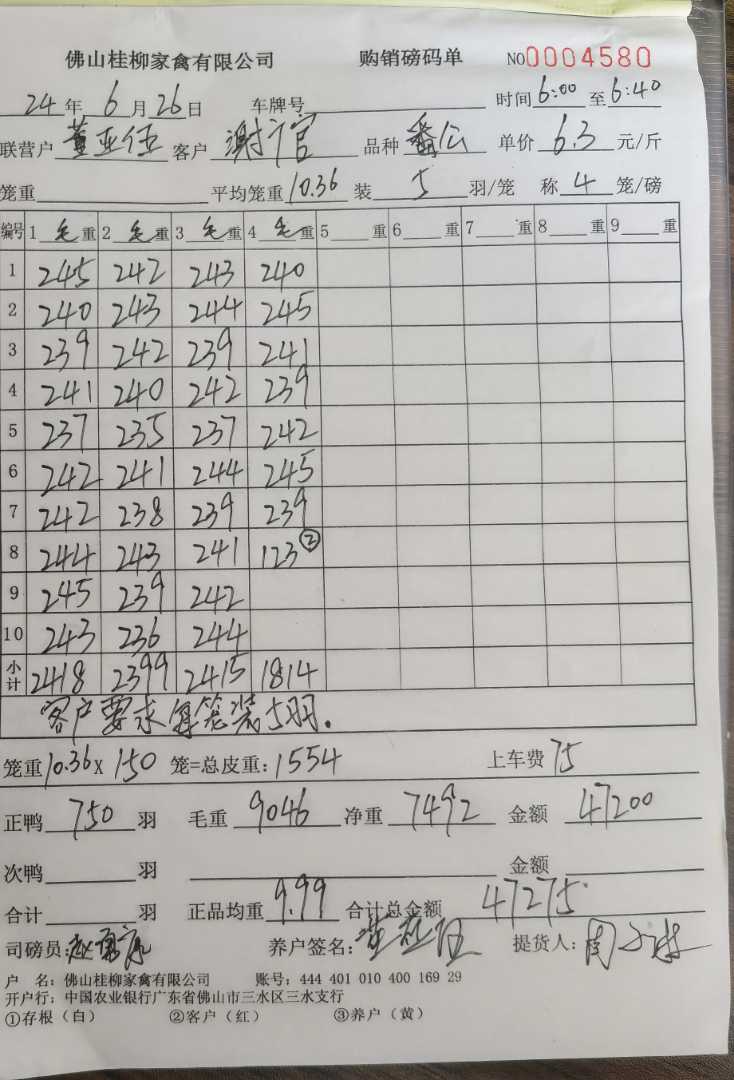 佛山桂柳家禽有限公司 购销磅码单 NO0004580
24年6月26日 车牌号 时间6:00至6:40
联营户董亚伍 客户 谢 官 品种番公 单价6.3元/斤
笼重 平均笼重10.36 装5羽/笼 称4笼/磅
编号 1毛重 2毛重 3毛重 4毛重 5重 6重 7重 8重 9重
1 245 242 243 240
2 240 243 244 245
3 239 242 239 241
4 241 240 242 239
5 237 235 237 242
6 242 241 244 245
7 242 238 239 239
8 244 243 241 123②
9 245 239 242
10 243 236 244
小计 2418 2399 2415 1814
客户要求每笼装5羽.
笼重10.36X150笼=总皮重:1554 上车费75
正鸭750羽 毛重9046 净重7492 金额47200
次鸭 羽 金额
合计 羽 正品均重9.99 合计总金额47275.
司磅员: 养户签名: 提货人:
户 名:佛山桂柳家禽有限公司 账号:444 401 010 400 169 29
开户行:中国农业银行广东省佛山市三水区三水支行
①存根(白) ②客户(红) ③养户(黄)